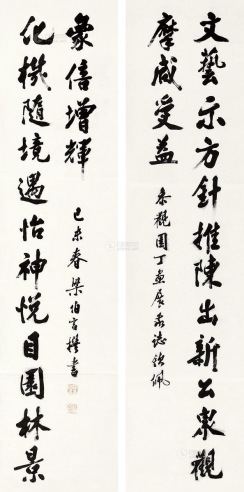 文藝示方針推陳出新公衆觀
摩咸受益
恭觀園丁畫展並誌欽佩
化機隨境遇怡神悅目園林景
象倍增輝
己未春梁伯言撰書